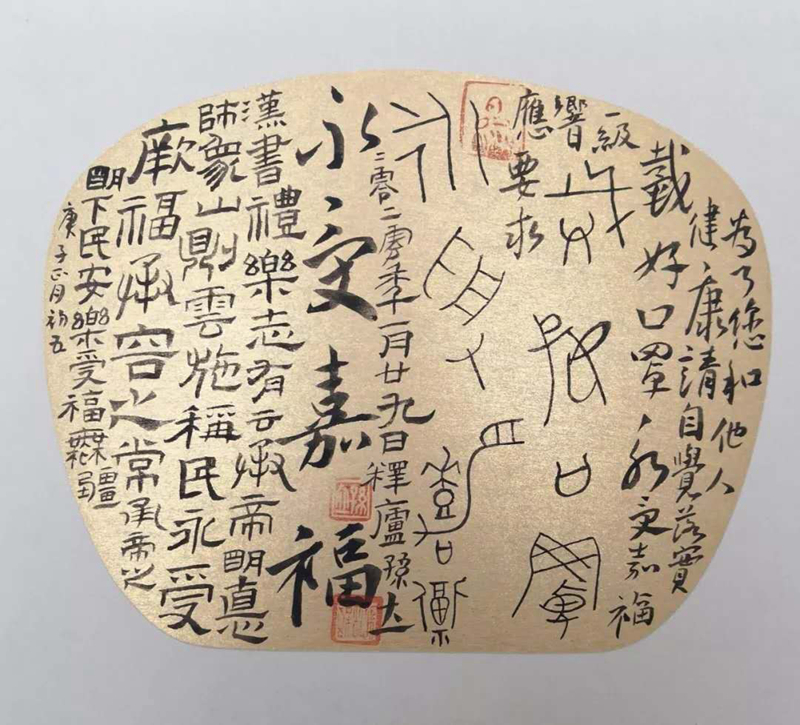 為了您和他人
健康請自覺落實
一級響應要求
戴好口罩永受嘉福
戴好口罩
永受嘉福
二零二零年一月廿九日釋廬孫
永受嘉福
漢書禮樂志有云承帝明惪
師象山則雲施稱民永受
厥福承容之常承帝之
明下民安樂受福無疆
庚子正月初五